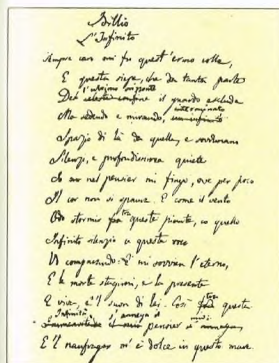 Idillio
L'Infinito
Sempre caro mi fu quest'ermo colle,
E questa siepe, che da tanta parte
Dell'ultimo orizzonte
De il guardo esclude.
Ma sedendo e mirando, interminato
Spazio di là da quella, e sovrumani
Silenzi, e profondissima quiete
Io nel pensier mi fingo, ove per poco
Il cor non si spaura. E come il vento
Odo stormir tra queste piante, io quello
Infinito silenzio a questa voce
Vo comparando: e mi sovvien l'eterno,
E le morte stagioni, e la presente
E viva, e 'l suon di lei. Così tra questa
Infinità s'annega il
pensier mio
E 'l naufragar m'è dolce in questo mare.